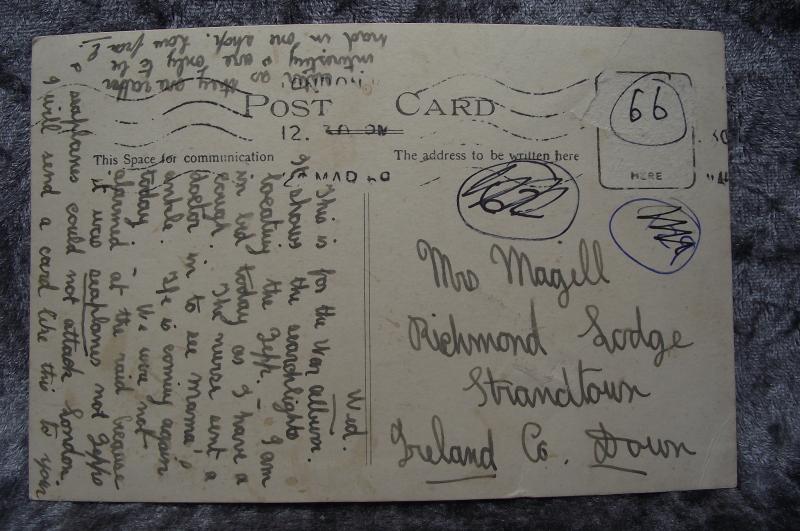 POST CARD
12.
This Space for communication
The address to be written here
HERE
66
Wed.
This is for the War album.
It shows the searchlights
locating the Zepp. – I am
in bed today as I have a
cough. The nurse sent a
doctor in to see mama's
ankle. He is coming again
today. – We were not
alarmed at the raid because
it was seaplanes not Zepps
& seaplanes could not attack London.
I will send a card like this to you
as they are rather
interesting & are only to be
had in one shop. Love from E.
Mrs Magill
Richmond Lodge
Strandtown
Ireland Co. Down